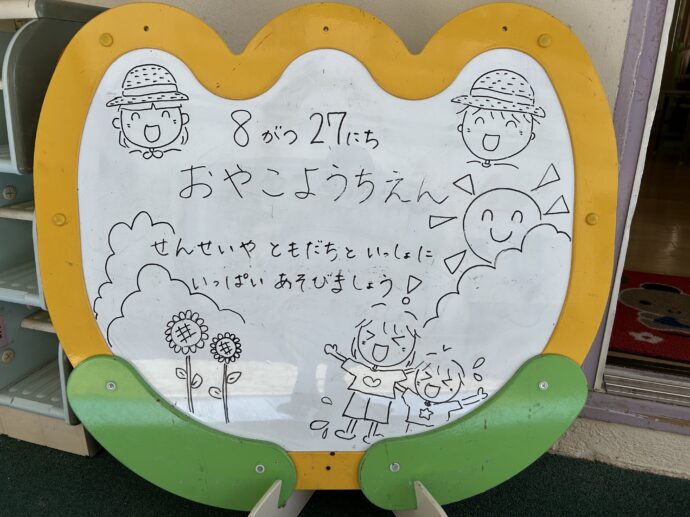 8がつ27にち
おやこようちえん
せんせいや ともだちと いっしょに
いっぱい あそびましょう!